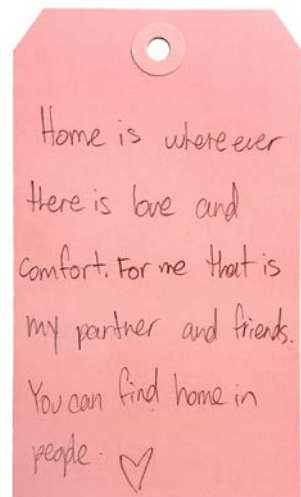 Home is where ever
there is love and
comfort. For me that is
my partner and friends.
You can find home in
people. ♡